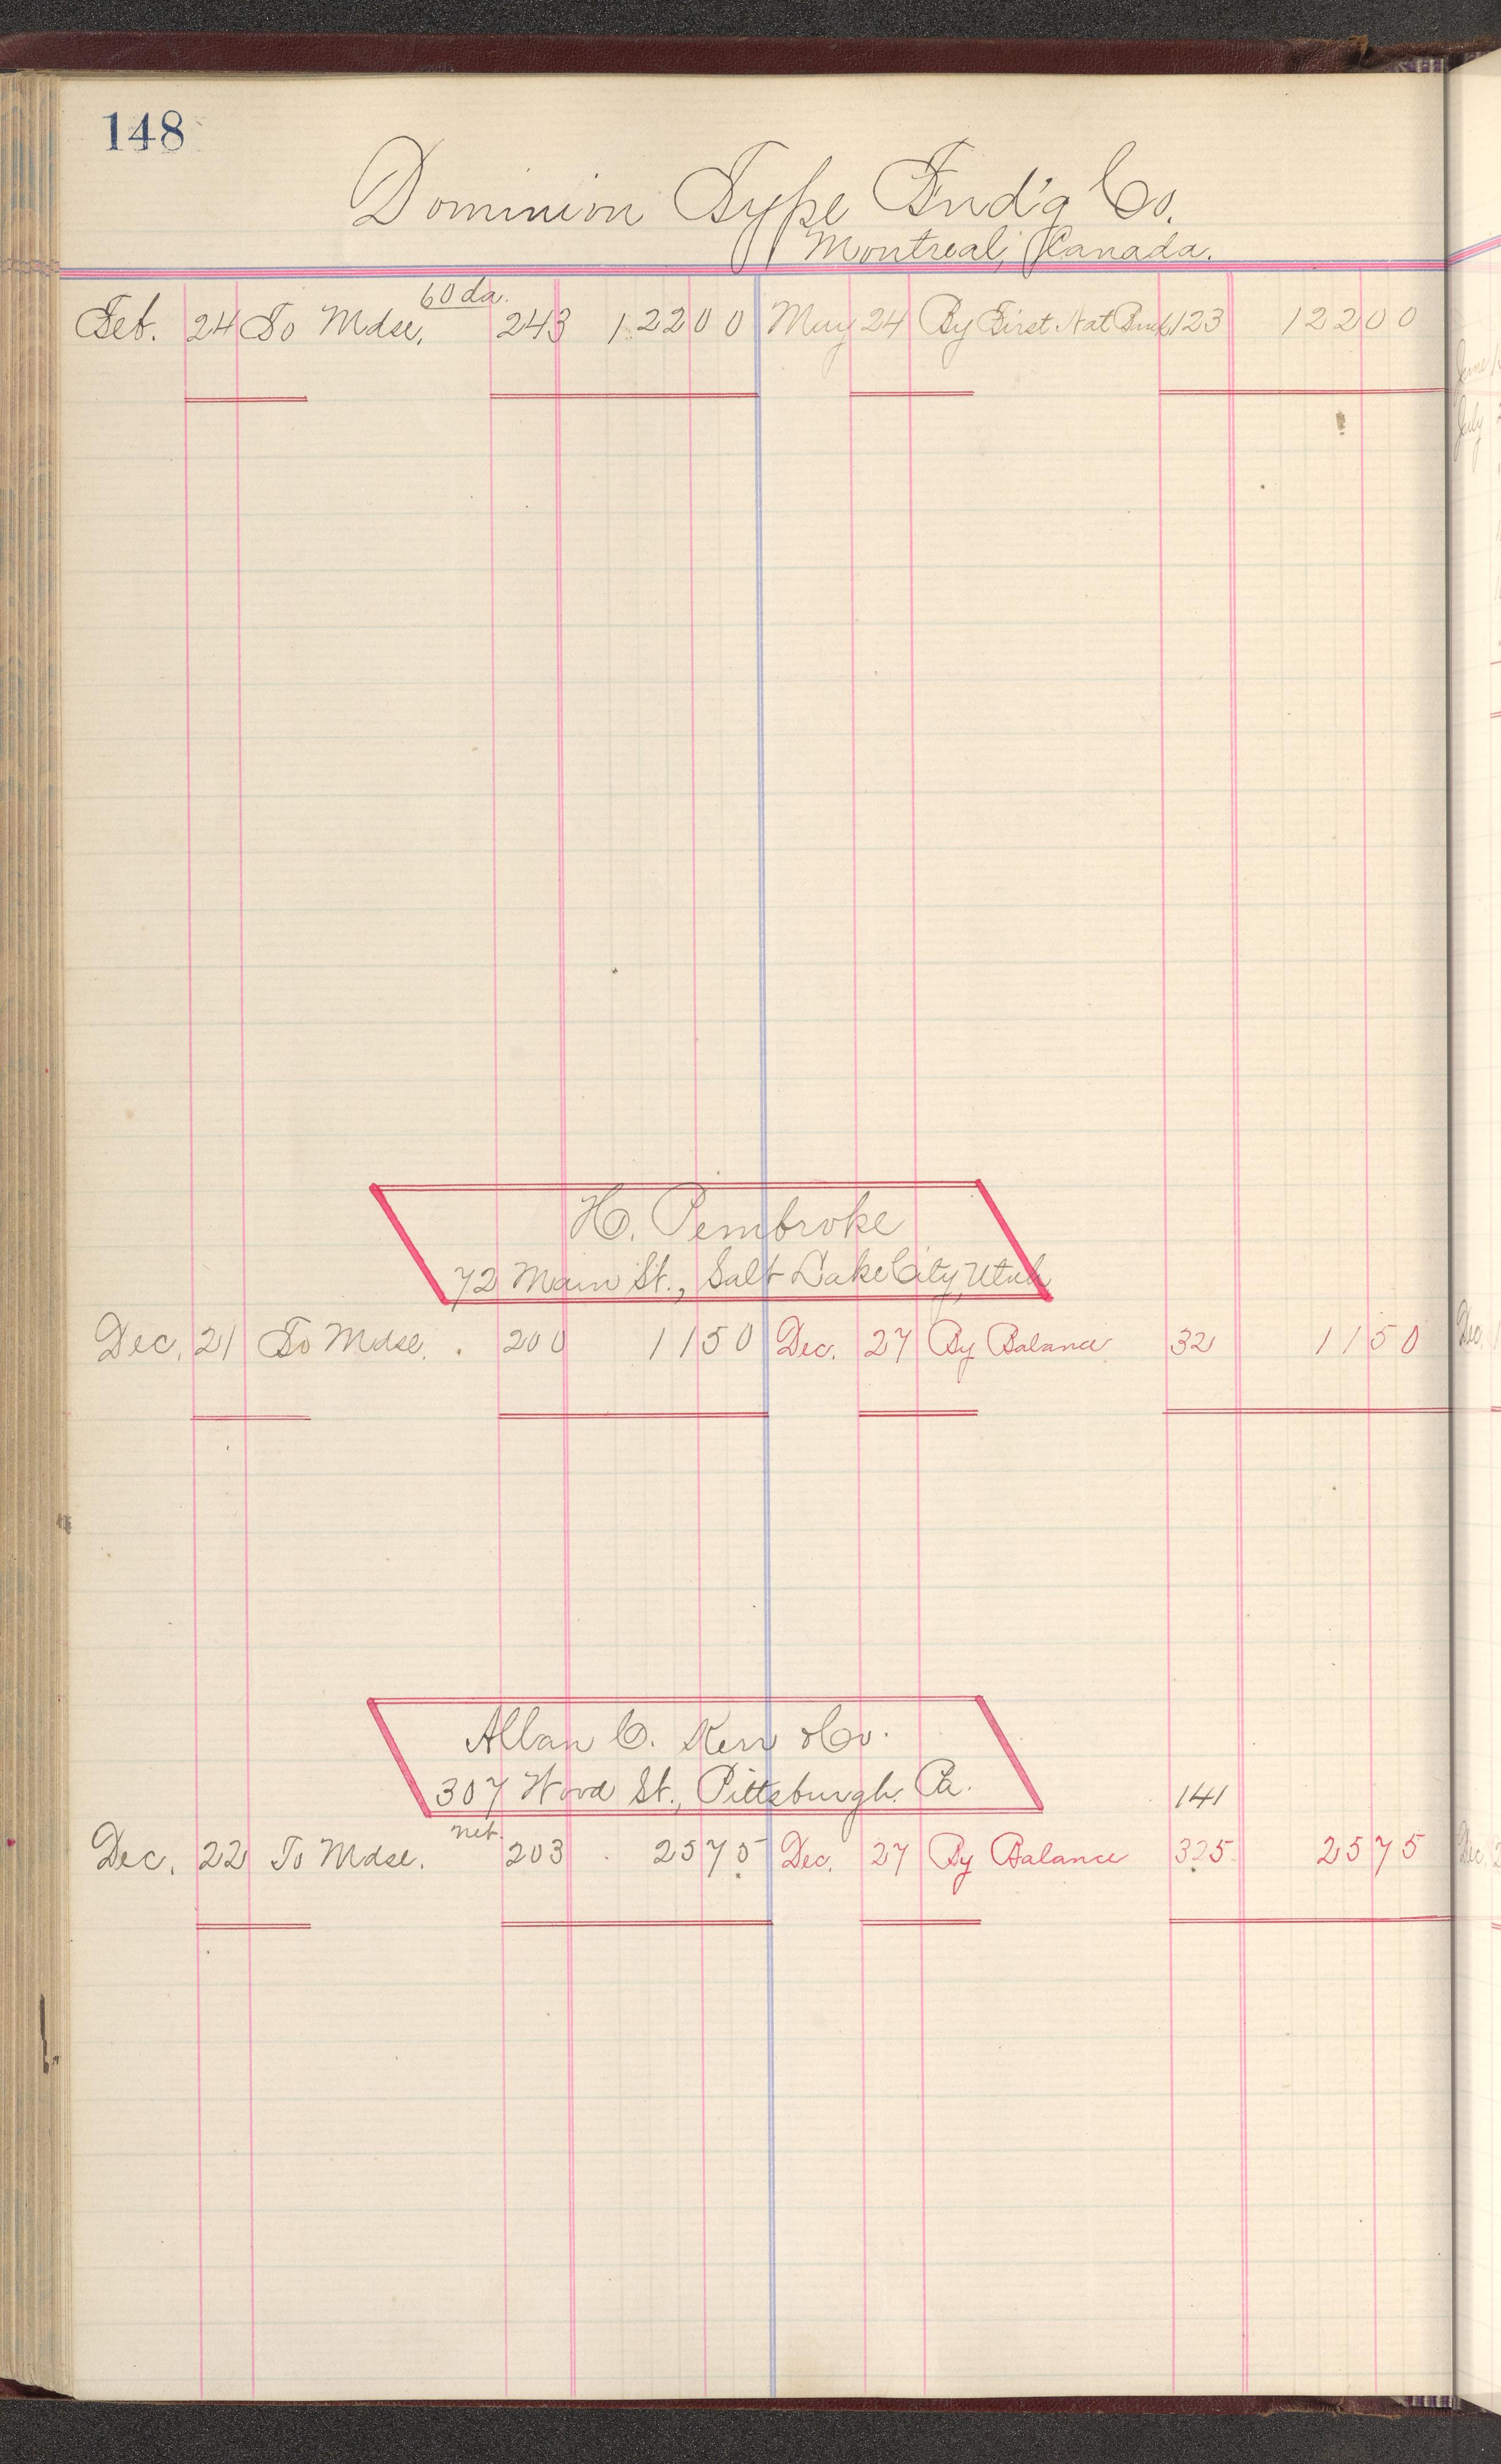 148
Dominion Type Fnd'g Co.
Montreal, Canada.
60 da.
Feb. 24 To Mdse, 243 122 00 May 24 By First Nat Bank 123 122 00
H. Pembroke
72 Main St., Salt Lake City, Utah
Dec. 21 To Mdse. 200 11 50 Dec. 27 By Balance 32 11 50
Allan C. Kerr & Co.
307 Wood St., Pittsburgh, Pa.
141
net
Dec. 22 To Mdse. 203 25 75 Dec. 27 By Balance 325 25 75
June
July
Dec.
Dec. 2